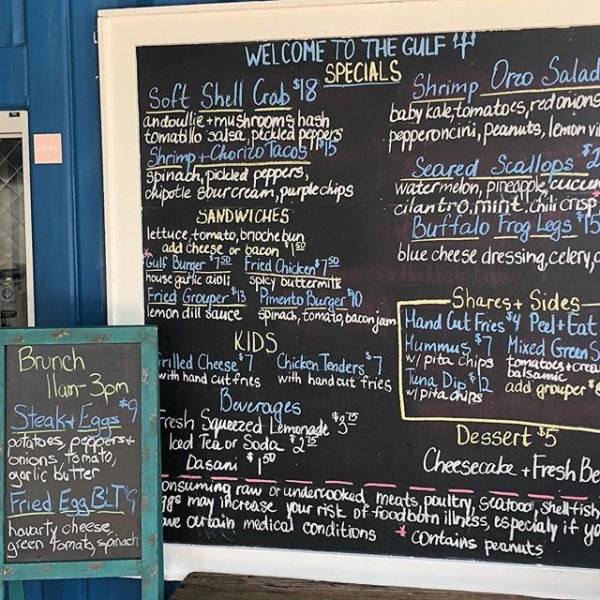 WELCOME TO THE GULF
SPECIALS
Soft Shell Crab $18
andouille + mushrooms hash
tomatillo salsa, pickled peppers
Shrimp + Chorizo Tacos $15
spinach, pickled peppers,
chipotle sour cream, purple chips
SANDWICHES
lettuce, tomato, brioche bun
add cheese or bacon $1.50
* Gulf Burger $7.50
house garlic aioli
Fried Chicken $7.50
spicy buttermilk
Fried Grouper $13
lemon dill sauce
Pimento Burger $10
spinach, tomato, bacon jam
KIDS
Grilled Cheese $7
with hand cut fries
Chicken Tenders $7
with hand cut fries
Beverages
Fresh Squeezed Lemonade $3.75
Iced Tea or Soda $2.75
Dasani $1.50
Shrimp Orzo Salad
baby kale, tomatoes, red onions
pepperoncini, peanuts, lemon vi
Seared Scallops $2
watermelon, pineapple, cucum
cilantro, mint, chili crisp
Buffalo Frog Legs $15
blue cheese dressing, celery, c
Shares + Sides
Hand Cut Fries $4
Hummus $7
w/ pita chips
Tuna Dip $12
w/ pita chips
Peel + Eat
Mixed Green S
tomatoes + crea
balsamic
add grouper $
Dessert $5
Cheesecake + Fresh Be
onsuming raw or undercooked meats, poultry, seafood, shellfish
ggs may increase your risk of foodborn illness, especialy if yo
ave certain medical conditions
* contains peanuts
Brunch
11am-3pm
Steak + Eggs $9
potatoes, peppers +
onions, tomato,
garlic butter
Fried Egg BLT $9
havarty cheese,
green tomato, spinach